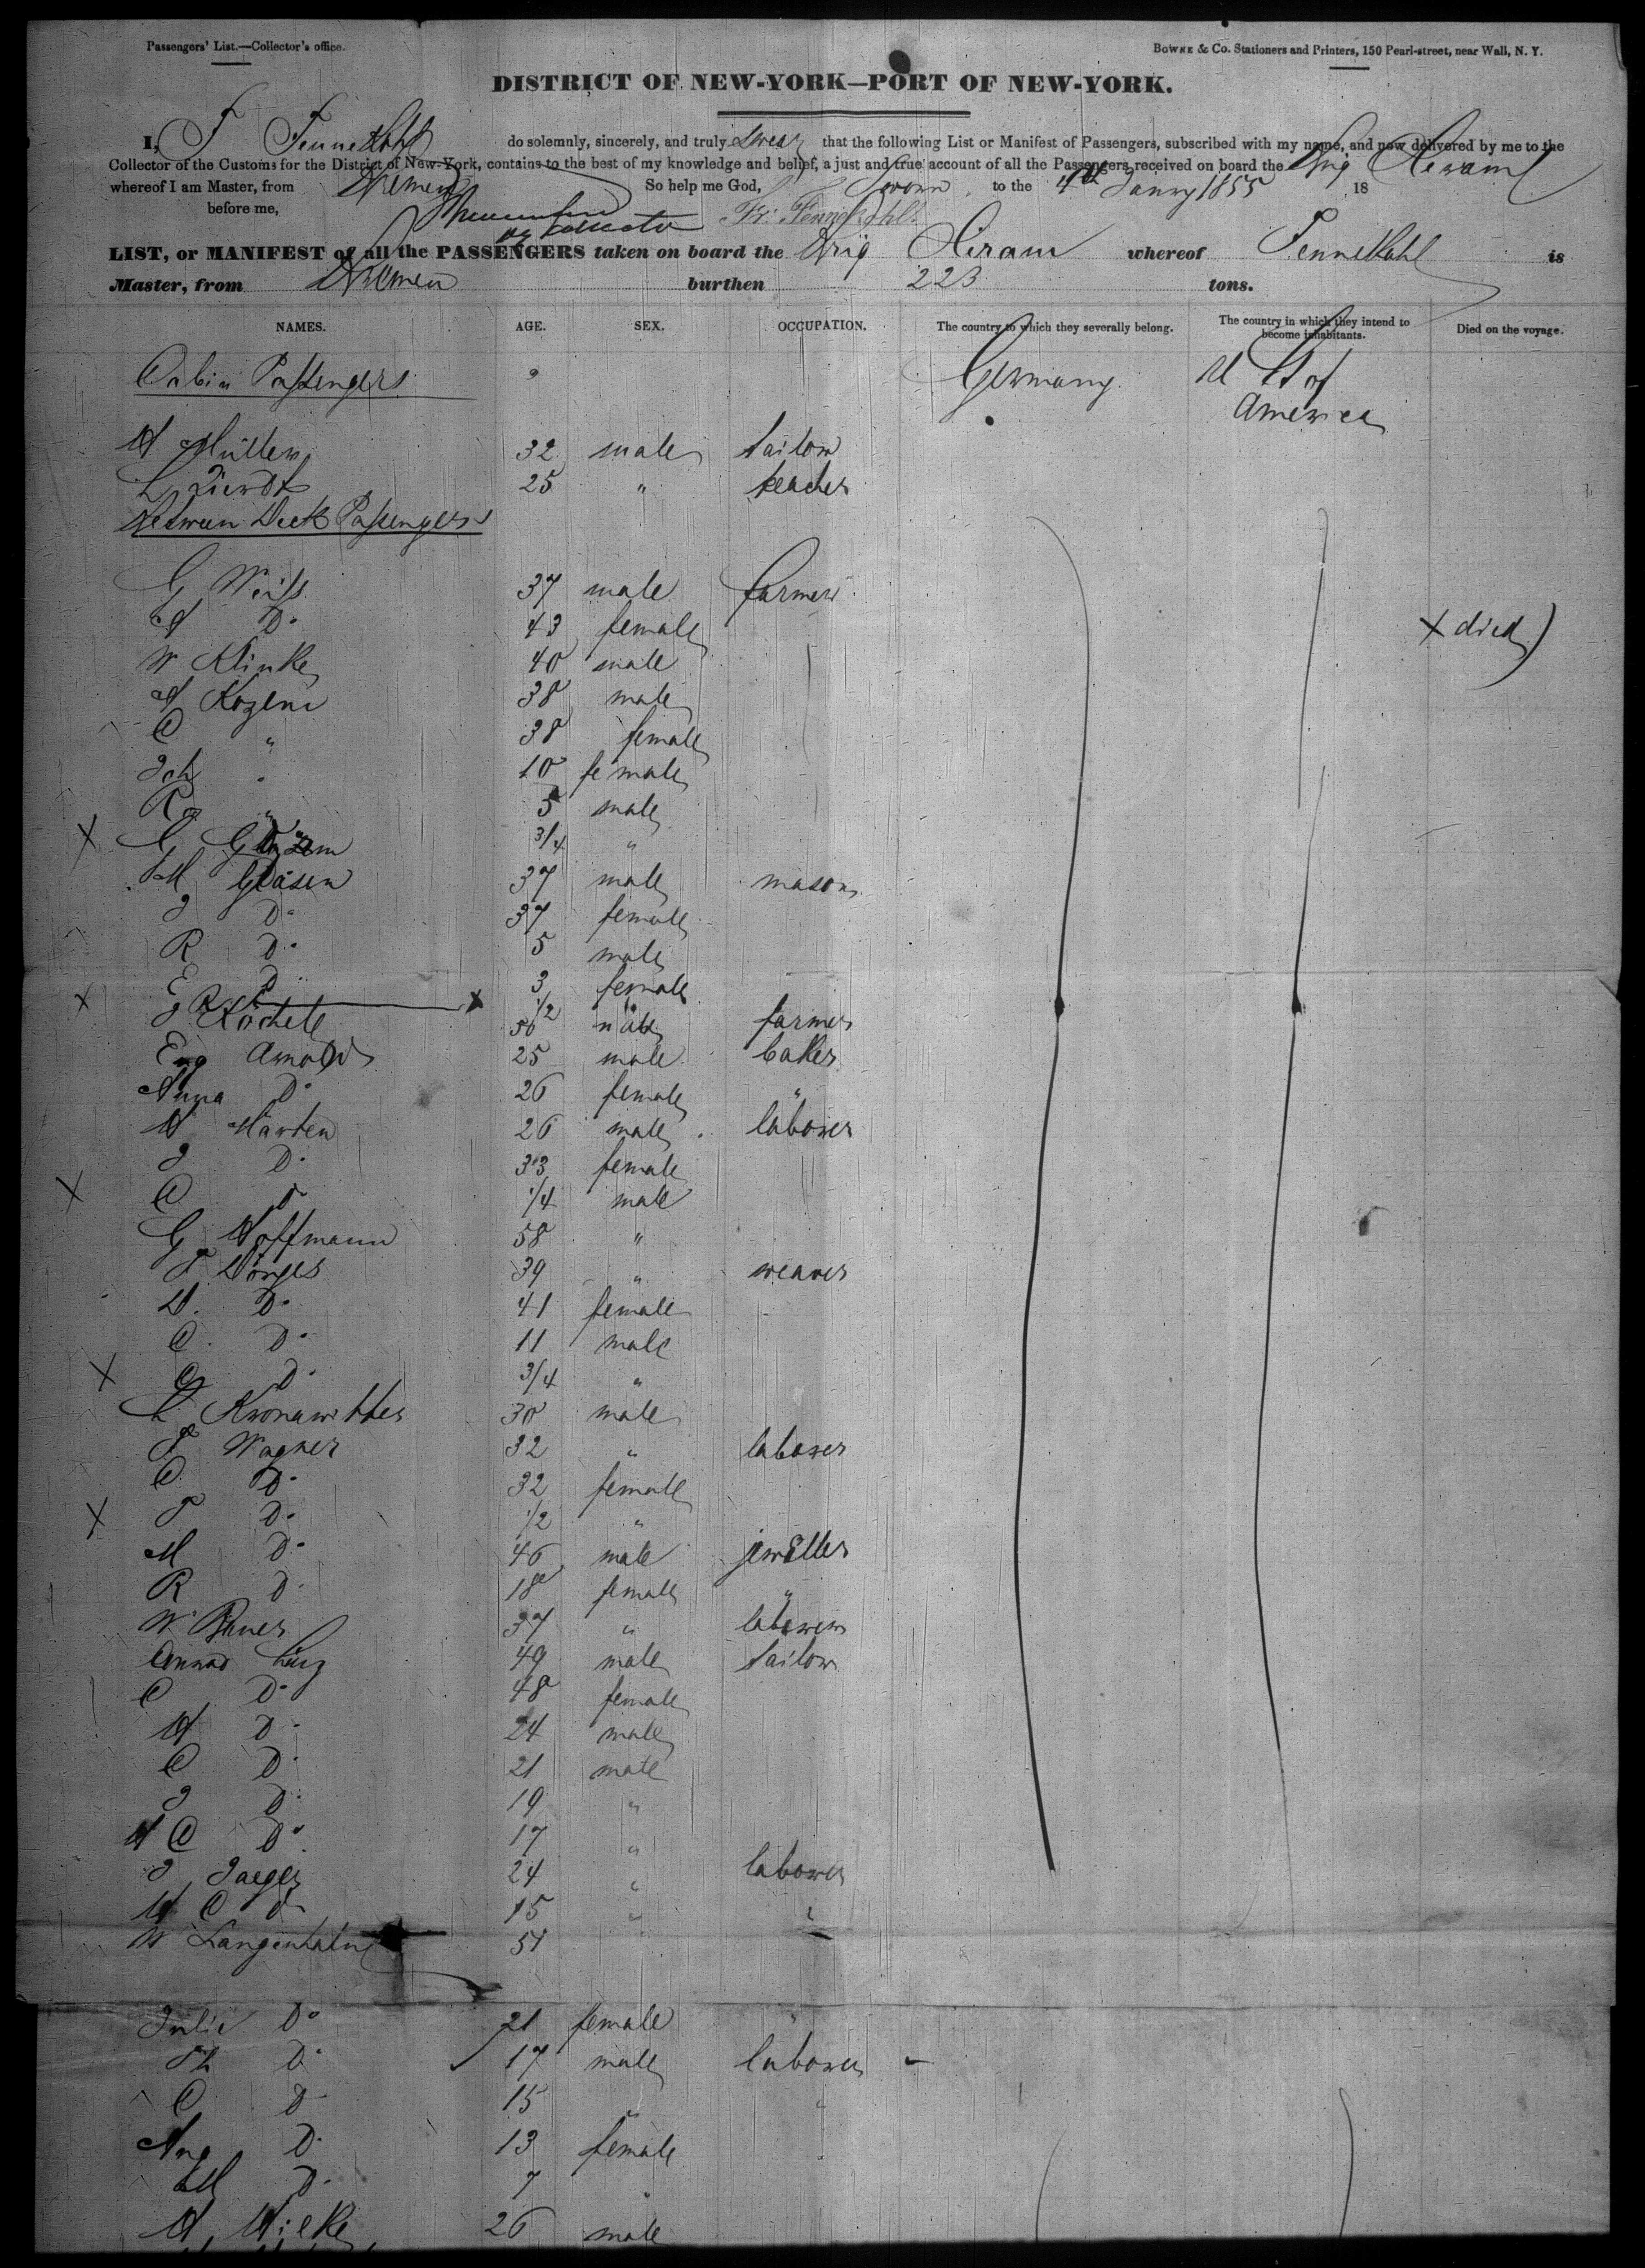 Passengers' List.—Collector's office.
BOWNE & Co. Stationers and Printers, 150 Pearl-street, near Wall, N. Y.
DISTRICT OF NEW-YORK—PORT OF NEW-YORK.
I, F Fennekohl do solemnly, sincerely, and truly swear that the following List or Manifest of Passengers, subscribed with my name, and now delivered by me to the
Collector of the Customs for the District of New-York, contains to the best of my knowledge and belief, a just and true account of all the Passengers received on board the Brig Hiram
whereof I am Master, from Bremen So help me God, Sworn to the 4th Janry 1855 18
before me, Fr. Fennekohl
LIST, or MANIFEST of all the PASSENGERS taken on board the Brig Hiram whereof Fennekohl is
Master, from Bremen burthen 223 tons.
NAMES. AGE. SEX. OCCUPATION. The country to which they severally belong. The country in which they intend to become inhabitants. Died on the voyage.
Cabin Passengers Germany U St of
America
H Müller 32 male tailor
L 25 " teacher
Between Deck Passengers
G Weiss 37 male farmer
Do 43 female X died
W Klinke 40 male
A Kozeni 38 male
C " 38 female
Joh " 10 female
R " 5 male
X G 3/4 "
M Gläsen 37 male mason
J Do 37 female
R Do 5 male
E D 3 female
X 1/2
J Köchele 56 male farmer
Eug Arnold 25 male baker
Anna Do 26 female "
H Marten 26 male laborer
J Do 33 female
X C D 1/4 male
G Hoffmann 58 "
F Dönges 39 " weaver
D. Do 41 female
C. Do 11 male
X C Do 3/4 "
L Kronawitter 30 male
F Wagner 32 " laborer
C. Do 32 female
X F Do 1/2 "
M Do 46 male jeweller
R D 18 female "
W 37 " laborer
Conrad 49 male tailor
C Do 48 female
H D 24 male
C D 21 male
J D 19 "
H C Do 17 "
J Jaeger 24 " laborer
H C D 15 " "
W 51
Julie Do 21 female "
D 17 male laborer
C D 15 "
Aug D 13 female
M D 7 "
H Wilke 26 male